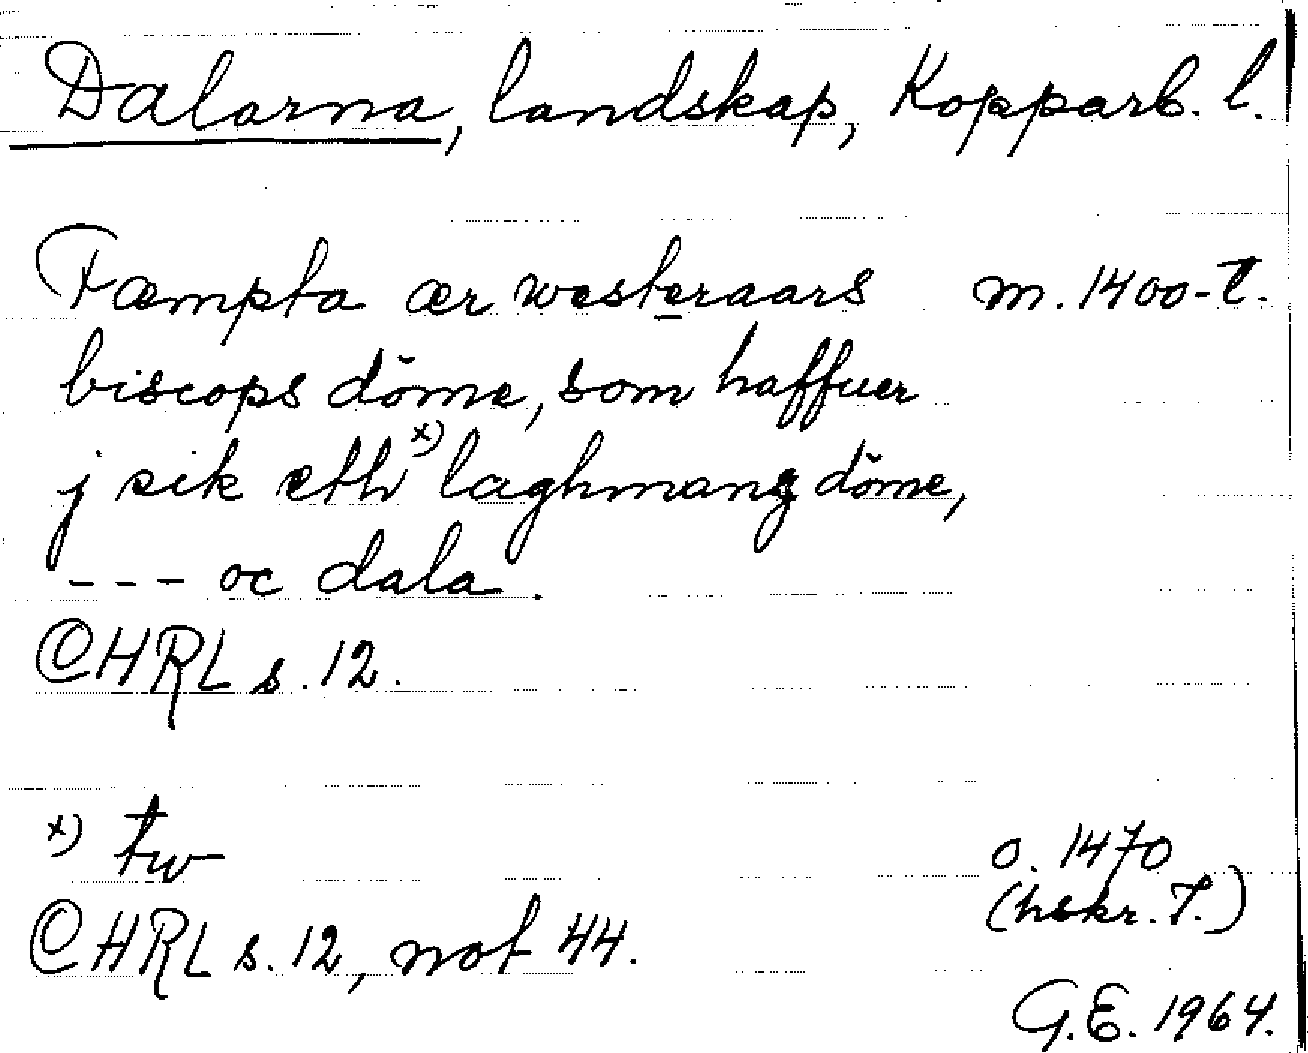 Dalarna, landskap, Kopparb. l.
Fæmpta ær westeraars m. 1400-t.
biscops döme, som haffuer
j sik eth x) laghmanz döme,
--- oc dala.
CHRL s. 12.
x) tw
o. 1470
(hskr. T.)
CHRL s. 12, not 44.
G.E. 1964.